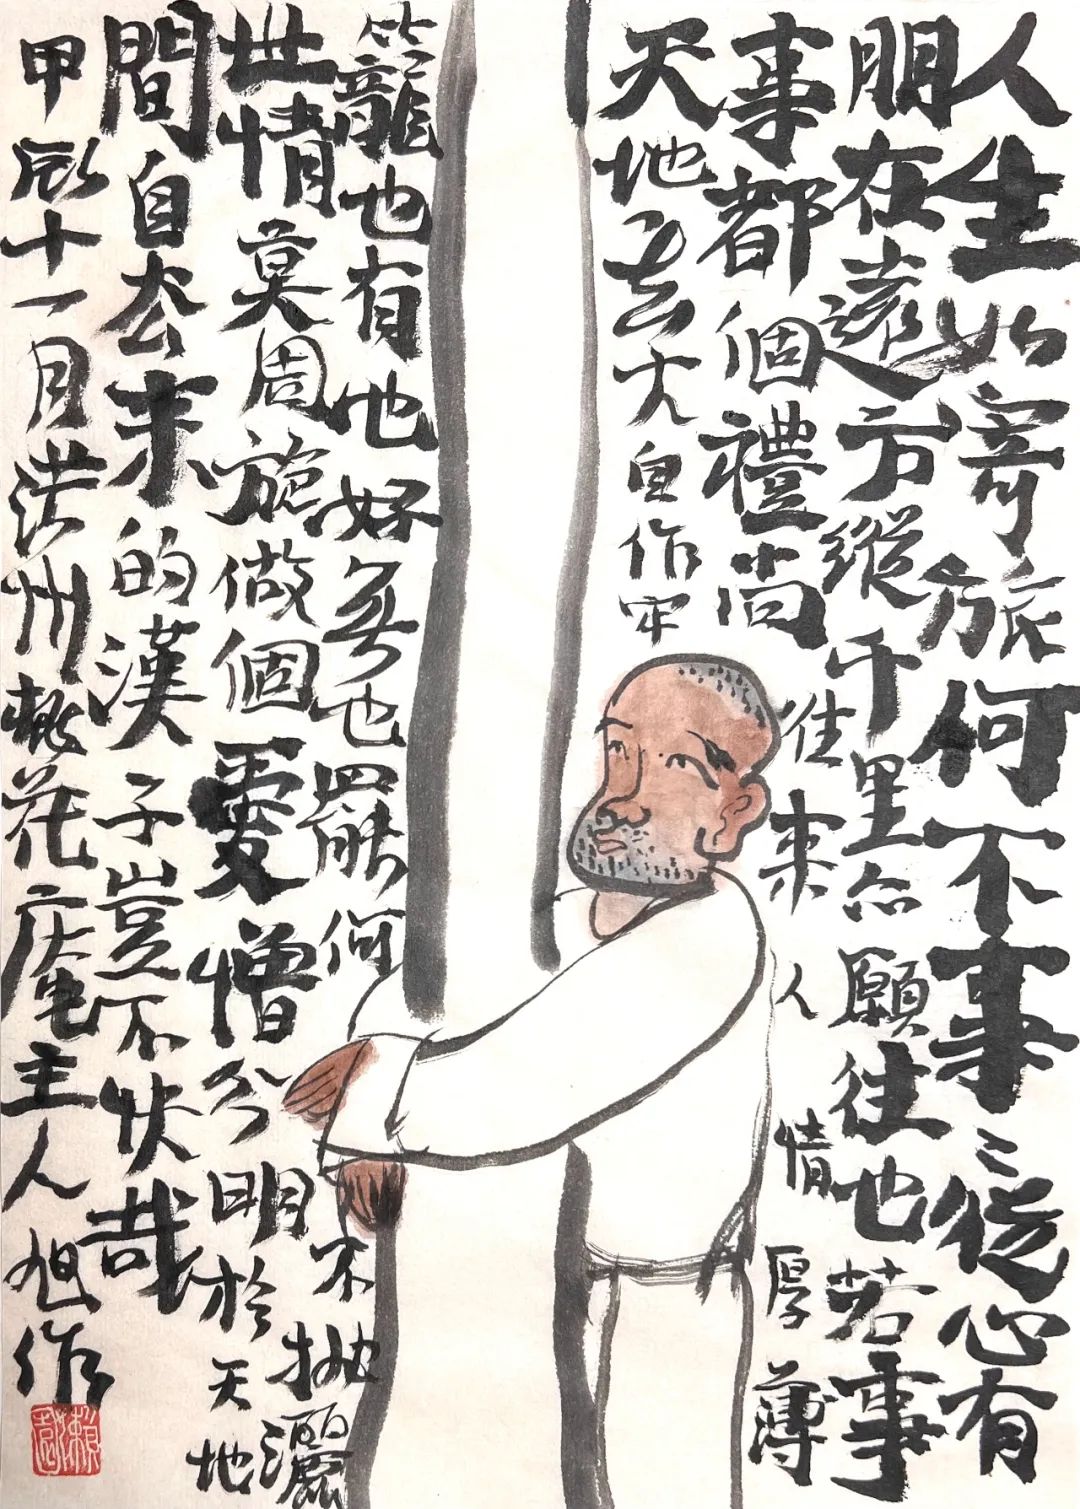 人生如寄旅何不事〻從心有
朋在遠方縱千里亦願往也若事
事都個禮尚往來人情厚薄
天地大自作牢
籠也有也好無也罷何不抛灑
世情莫周旋做個愛憎分明於天地
間自去來的漢子豈不快哉
甲辰十一月洪州桃花庵主人旭作